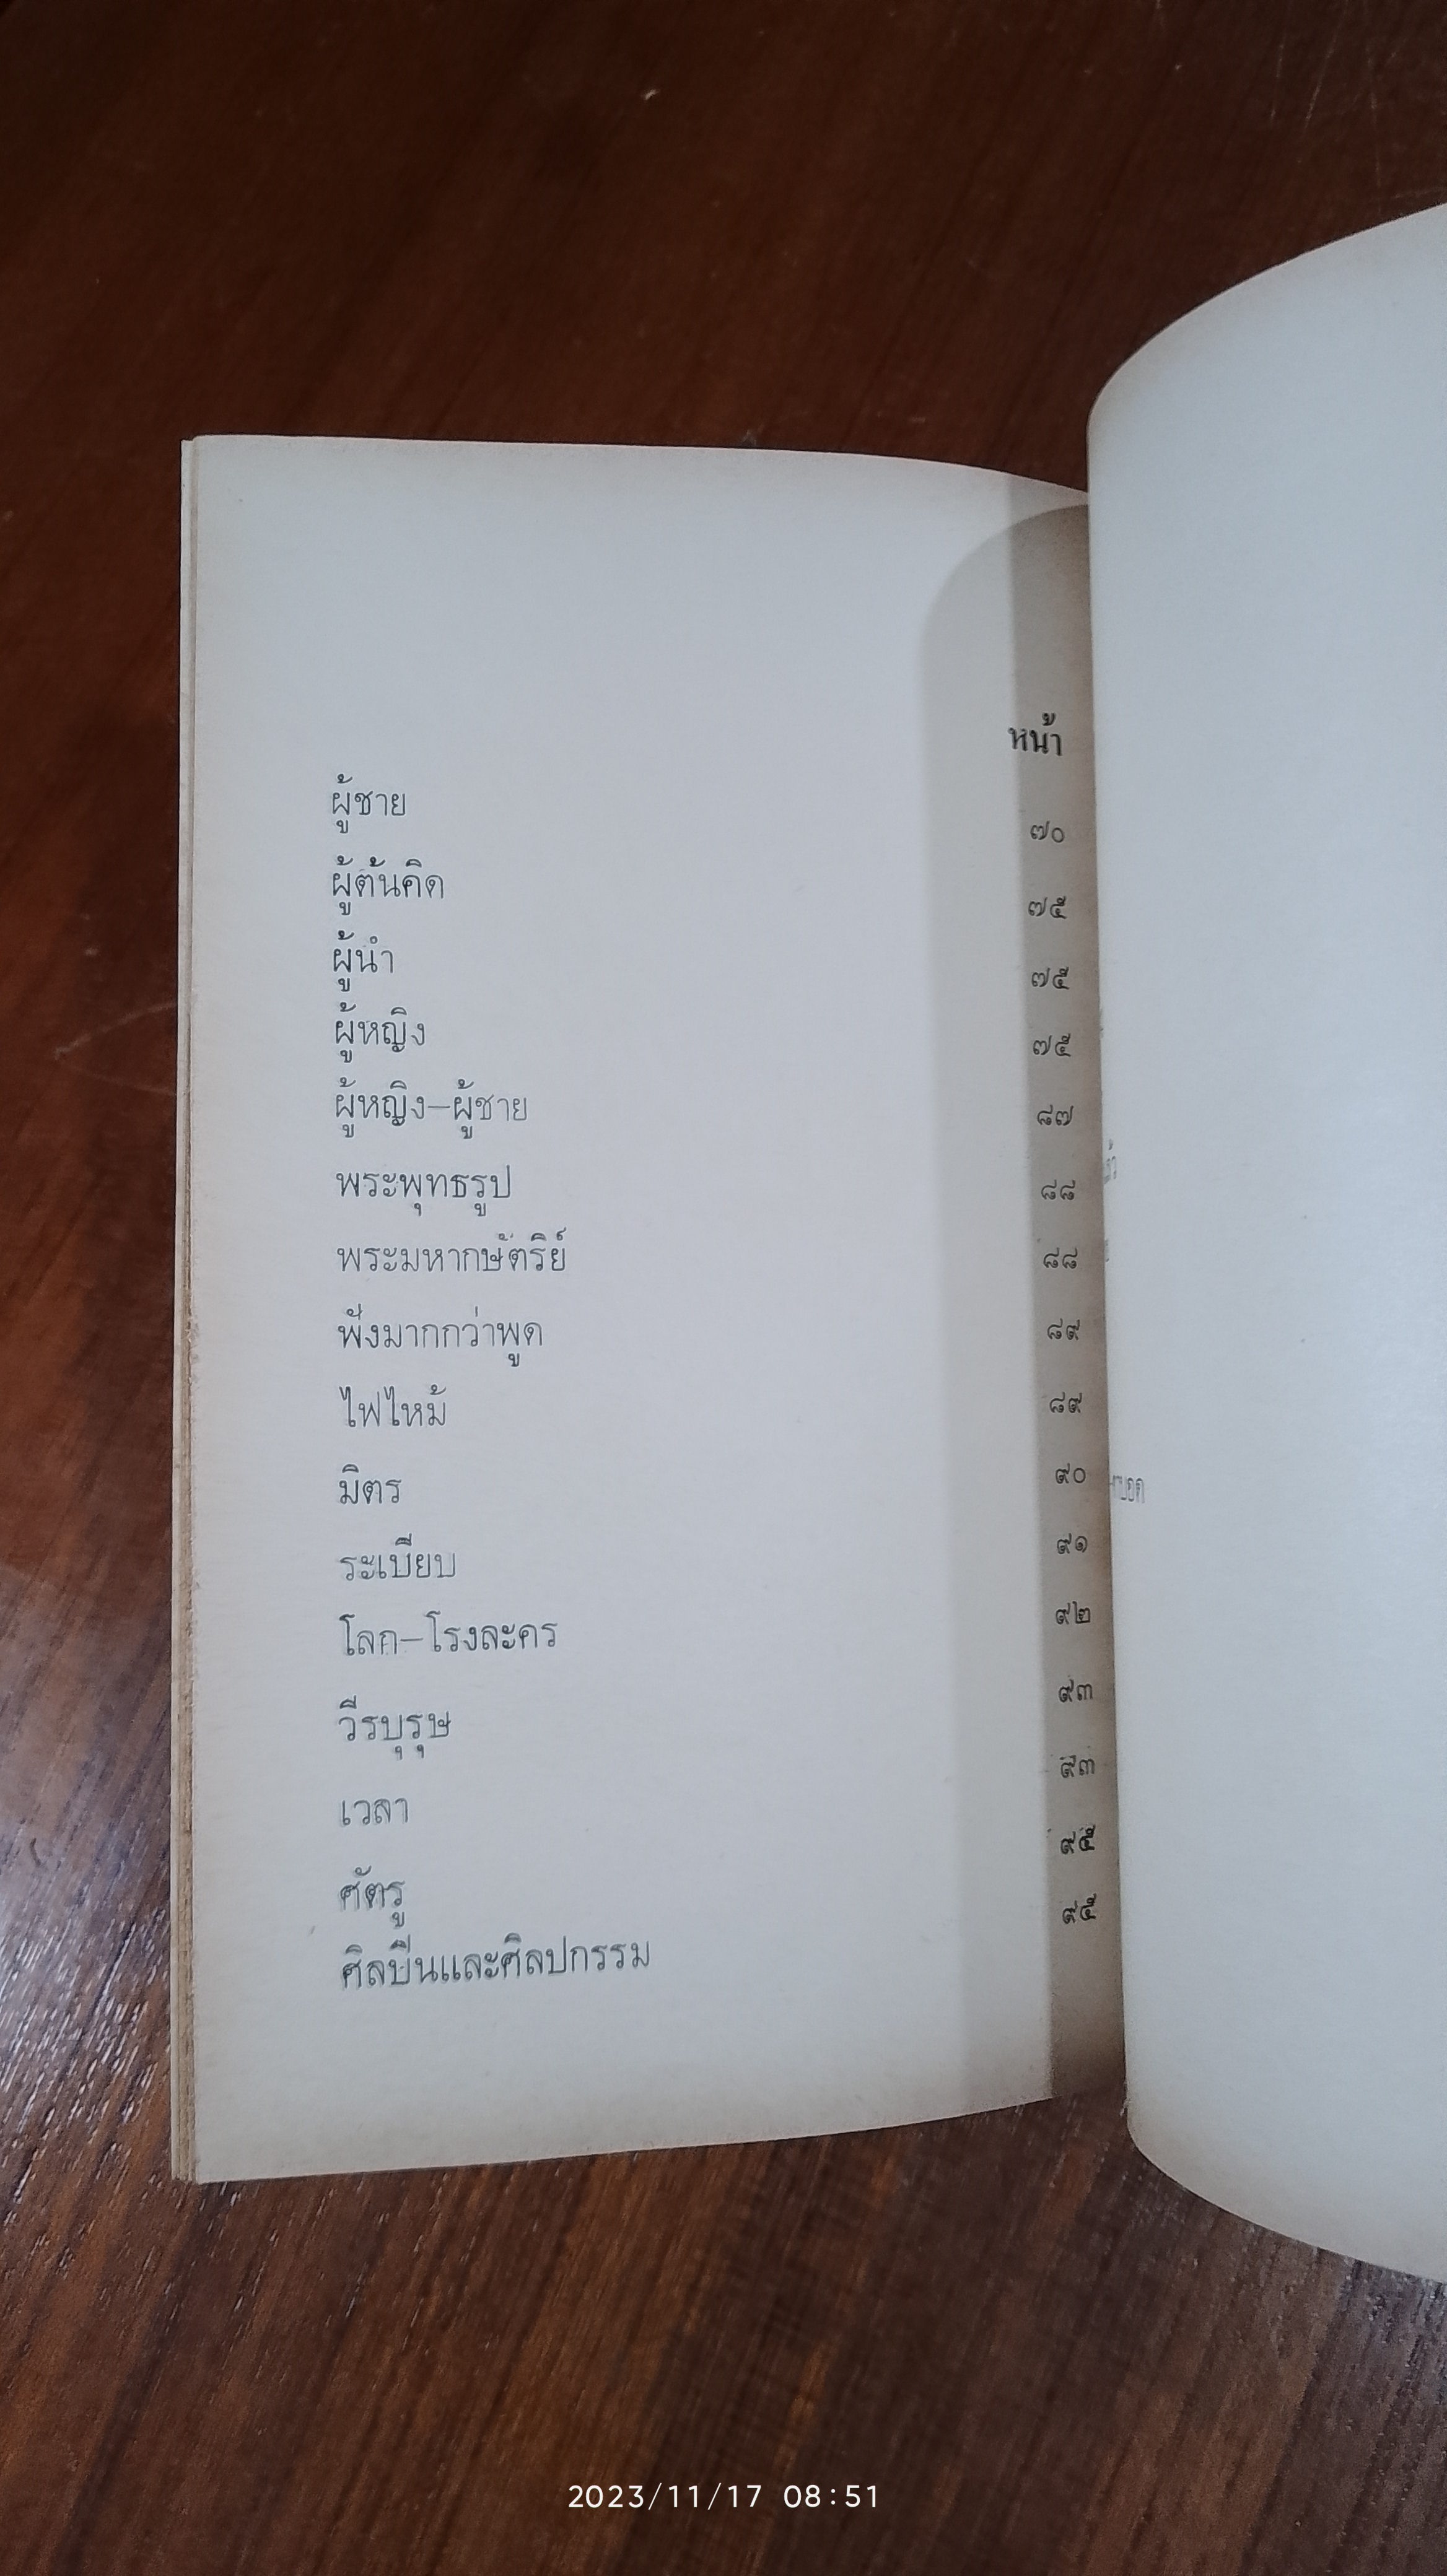 หน้า
ผู้ชาย ๗๐
ผู้ต้นคิด ๗๕
ผู้นำ ๗๕
ผู้หญิง ๗๕
ผู้หญิง–ผู้ชาย ๘๗
พระพุทธรูป ๘๘
พระมหากษัตริย์ ๘๘
ฟังมากกว่าพูด ๘๙
ไฟไหม้ ๘๙
มิตร ๙๐
ระเบียบ ๙๑
โลก–โรงละคร ๙๒
วีรบุรุษ ๙๓
เวลา ๙๓
ศัตรู ๙๕
ศิลปินและศิลปกรรม ๙๕
2023/11/17 08:51